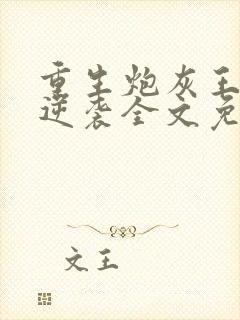 重生炮灰王
逆袭全文免
文王